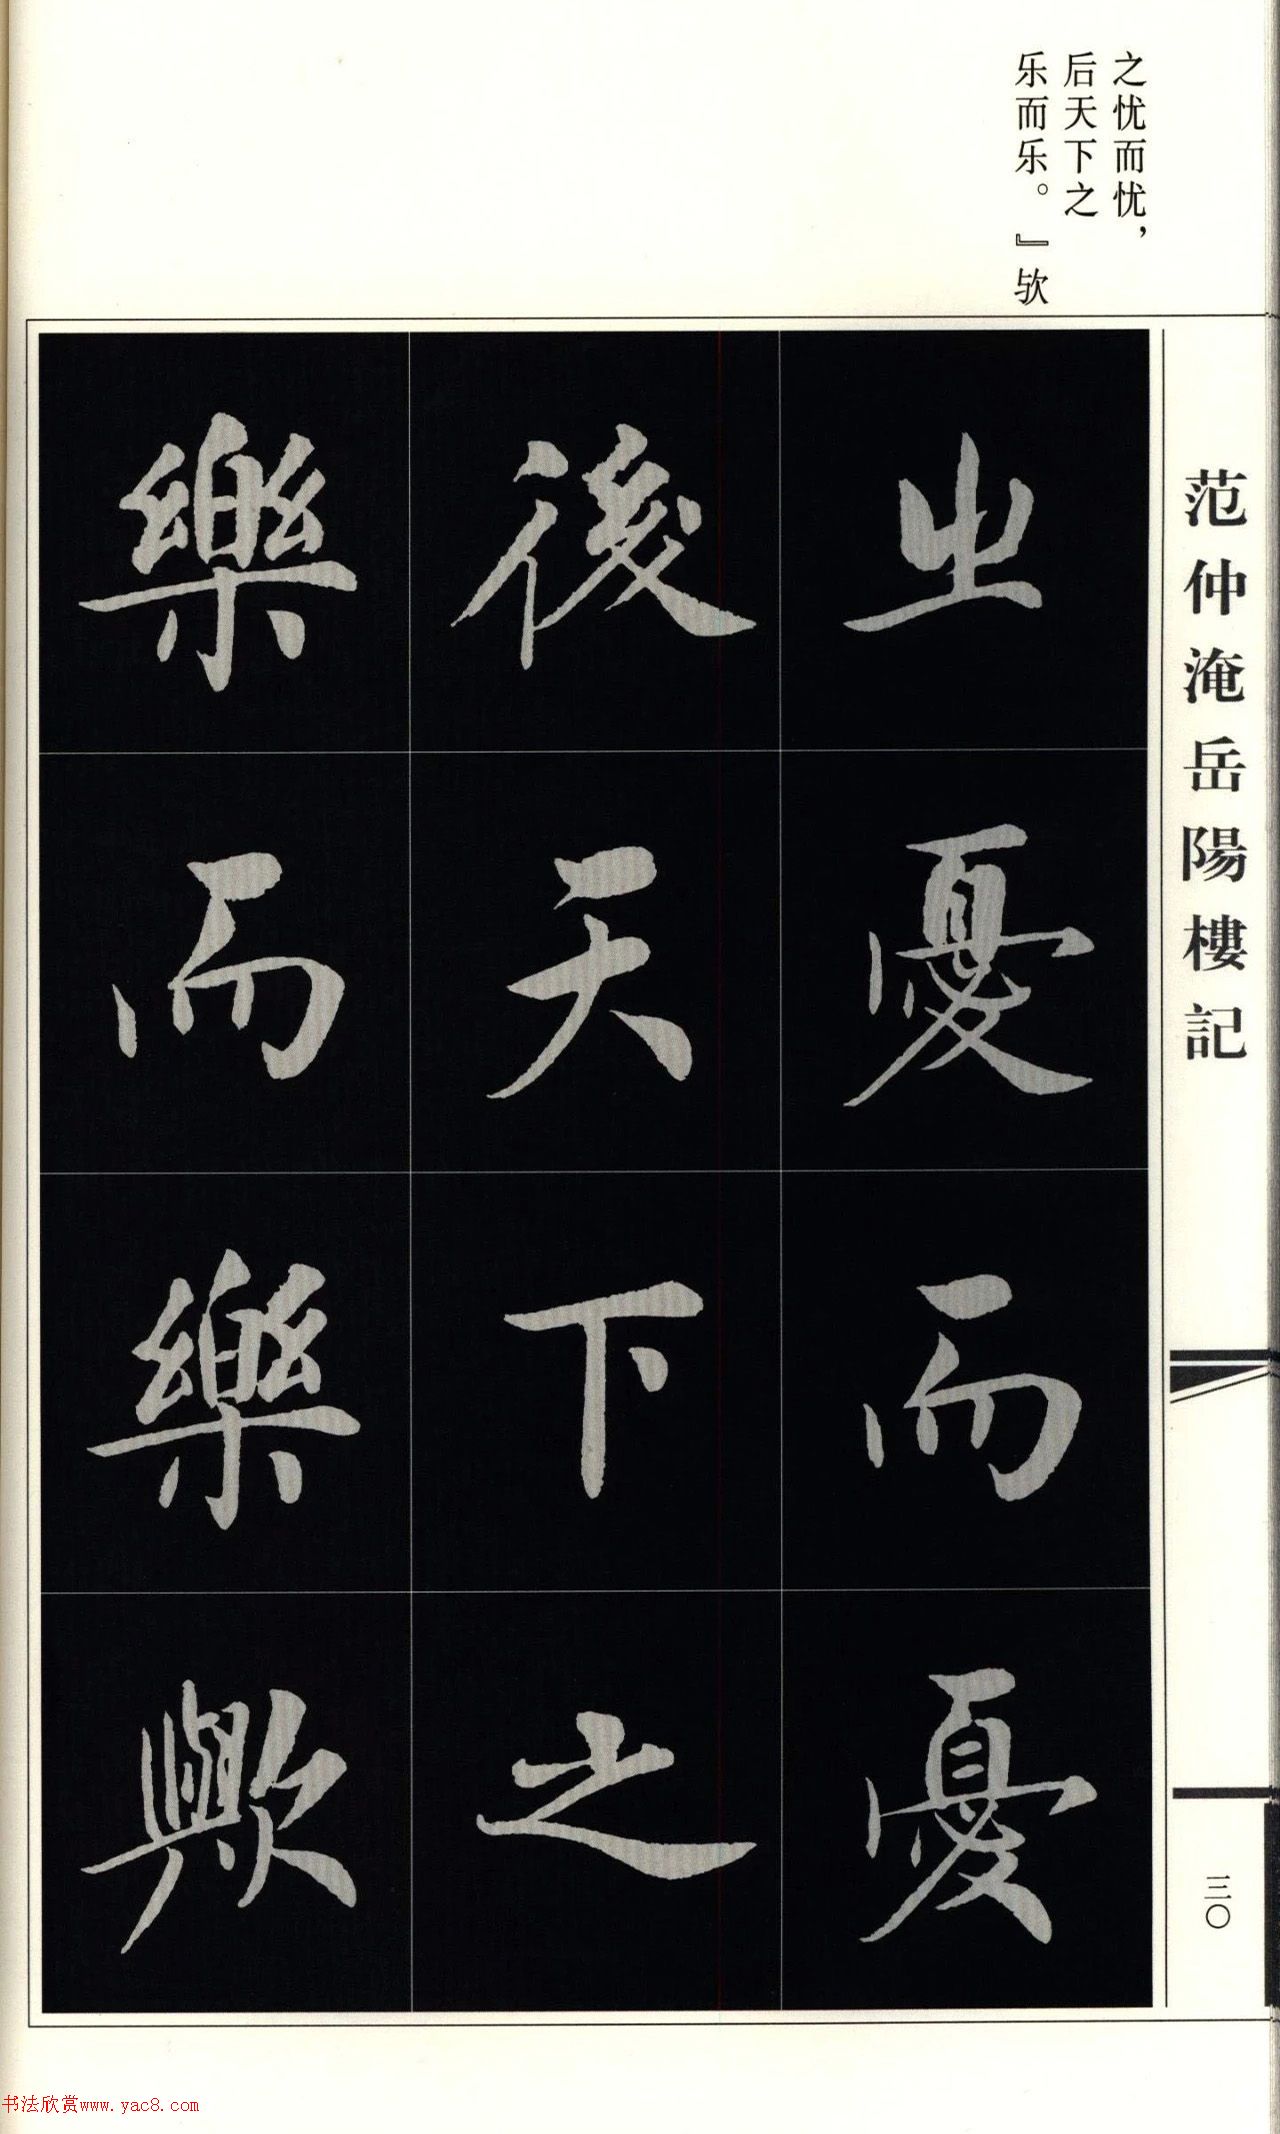 之忧而忧，
后天下之
乐而乐。』欤
范仲淹岳陽樓記
之憂而憂
後天下之
樂而樂歟
三〇
书法欣赏www.yac8.com